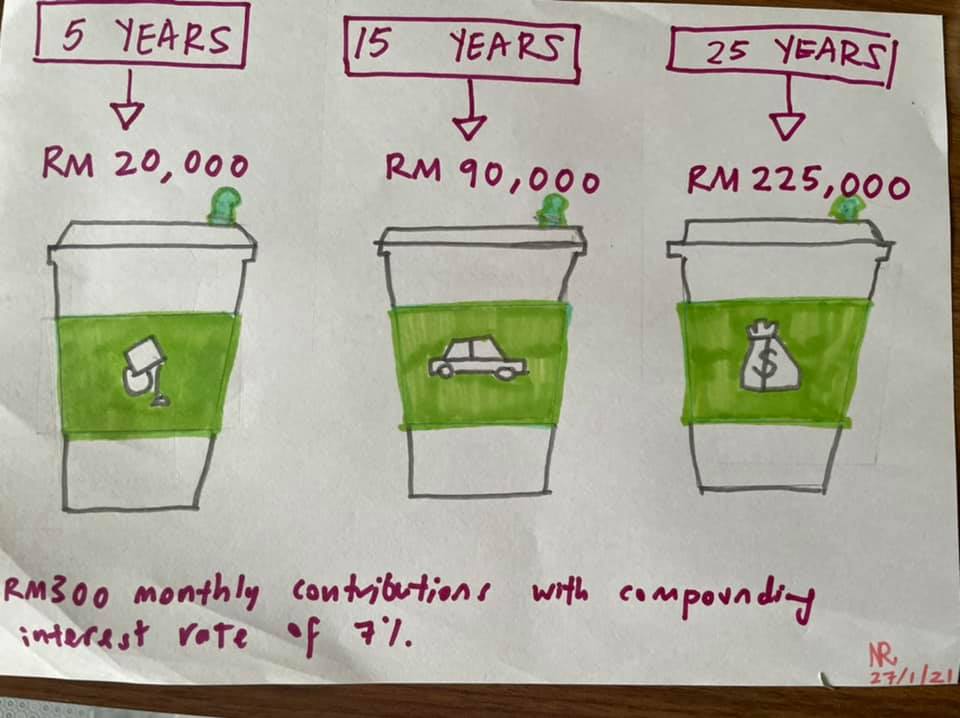 5 YEARS
15 YEARS
25 YEARS
RM 20,000
RM 90,000
RM 225,000
$
RM300 monthly contributions with compounding
interest rate of 7%.
NR
27/1/21